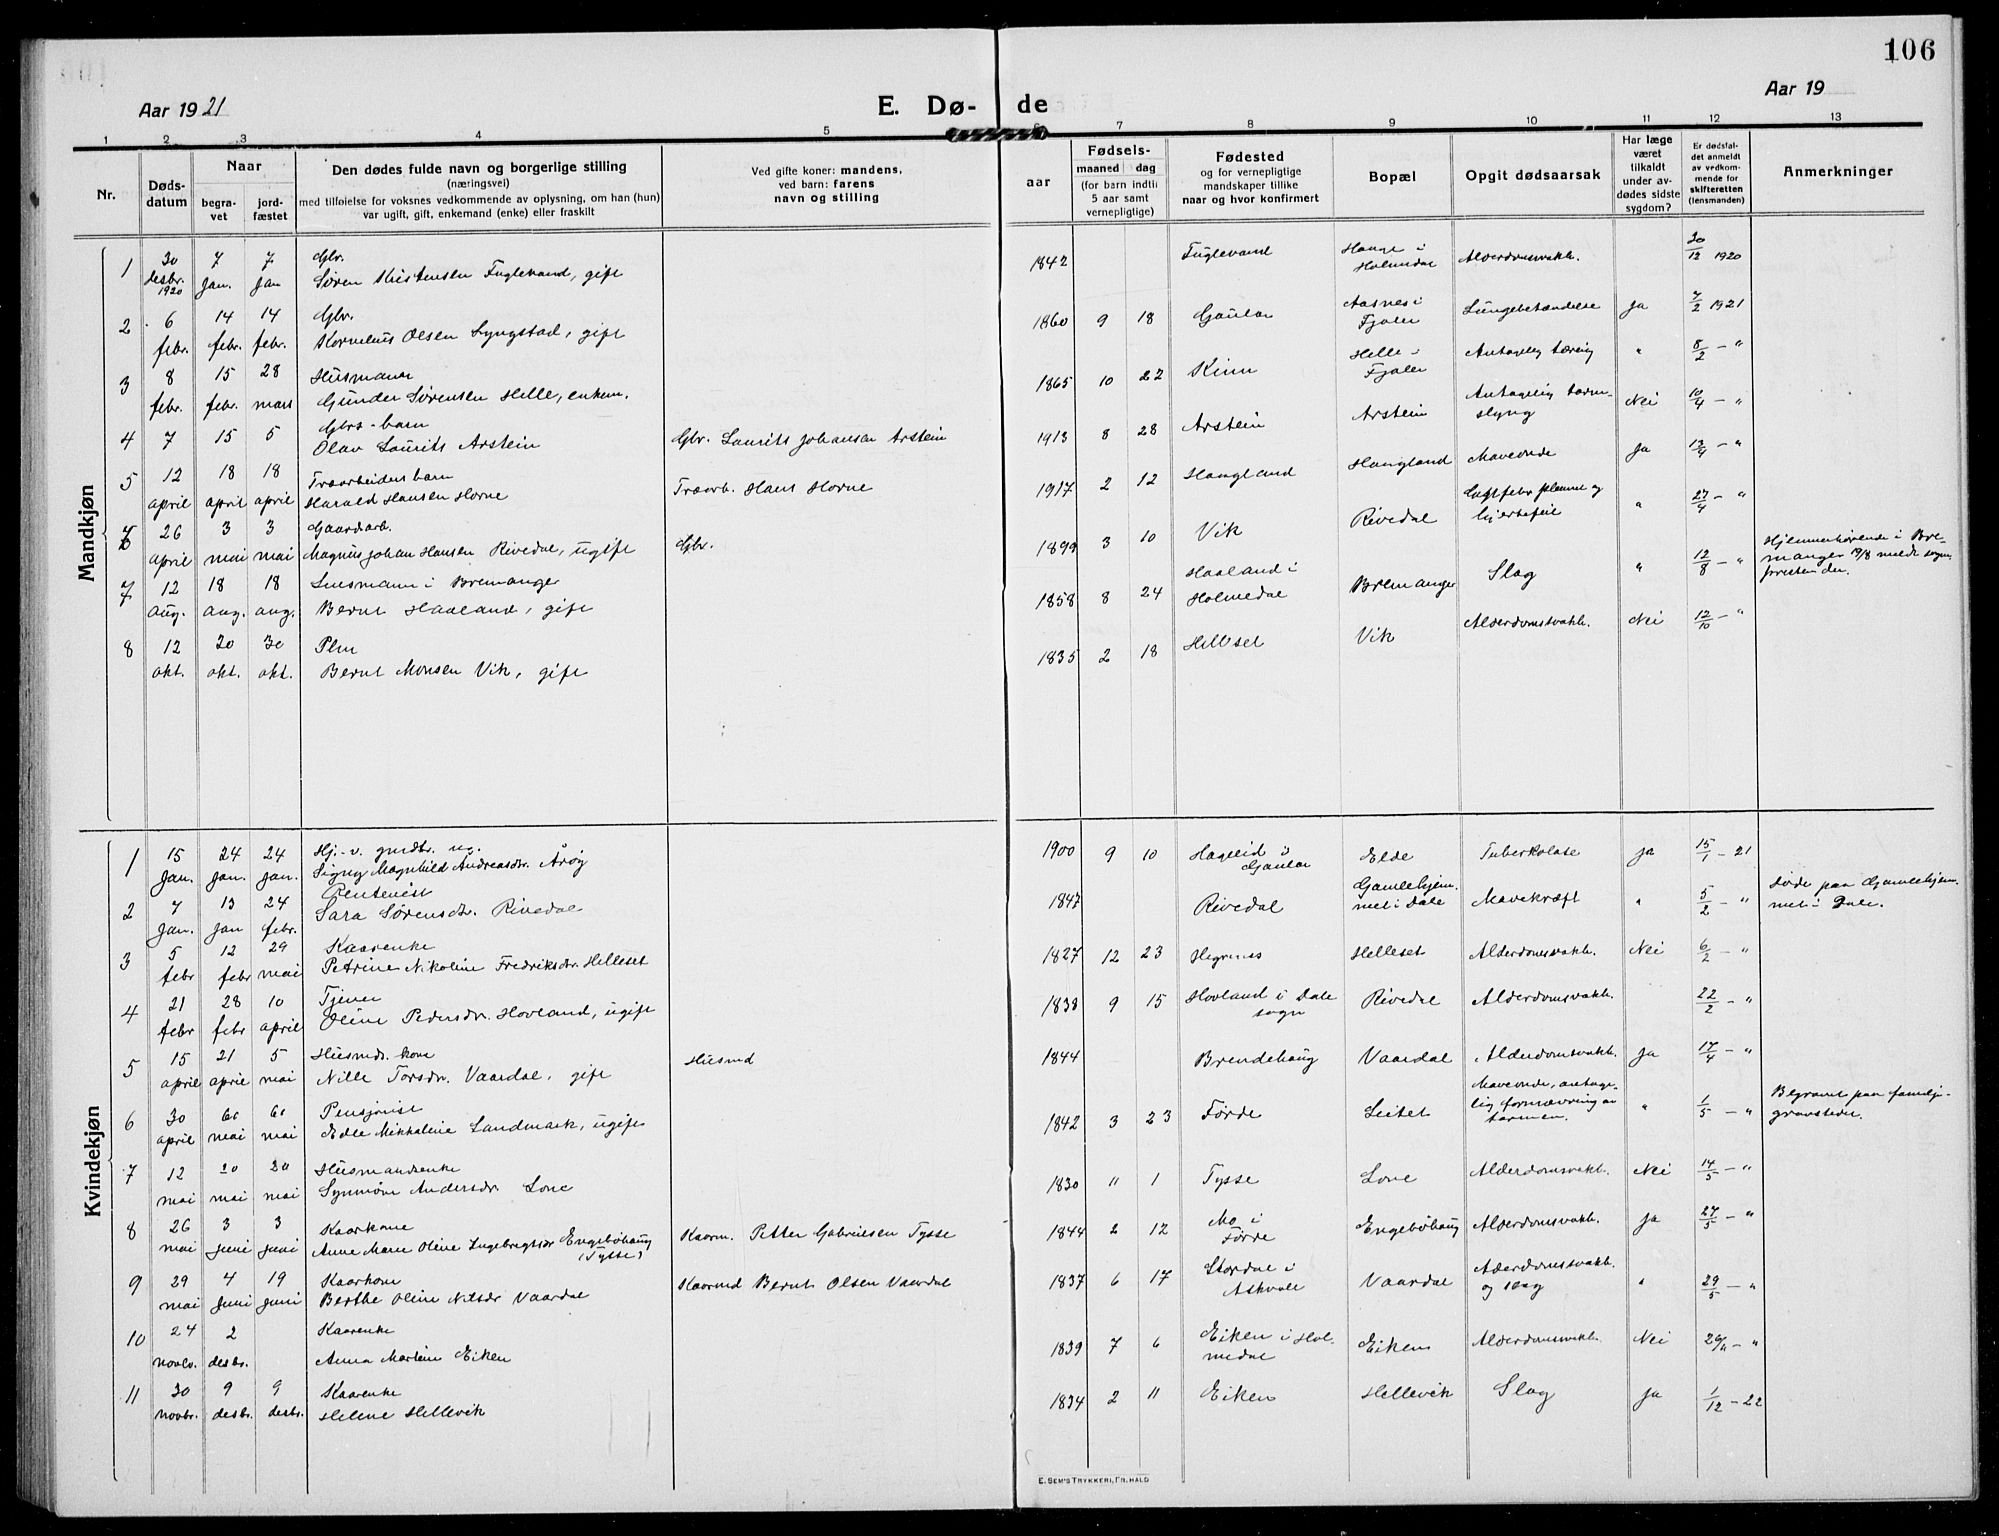 106
Aar 1921
E. Dø- de
Aar 19
1 2 3 4 5 6 7 8 9 10 11 12 13
Nr.
Døds-
datum
Naar
begra-
vet
jord-
fæstet
Den dødes fulde navn og borgerlige stilling
(næringsvei)
med tilføielse for voksnes vedkommende av oplysning, om han (hun)
var ugift, gift, enkemand (enke) eller fraskilt
Ved gifte koner: mandens,
ved barn: farens
navn og stilling
aar
Fødsels-
maaned dag
(for barn indtil
5 aar samt
vernepligtige)
Fødested
og for vernepligtige
mandskaper tillike
naar og hvor konfirmert
Bopæl
Opgit dødsaarsak
Har læge
været
tilkaldt
under av-
dødes sidste
sygdom?
Er dødsfal-
det anmeldt
av vedkom-
mende for
skifteretten
(lensmanden)
Anmerkninger
Mandkjøn
1 30 7 7 Gbr.
desbr. 1920 jan. jan Søren Kristensen Fuglevand, gift
1842 Fuglevand Hauge i Holmedal Alderdomsvakh. 30/12 1920
2 6 14 14 Gbr.
febr. febr. febr. Kornelius Olsen Lyngstad, gift
1860 9 18 Gaular Aasnes i Fjaler Lungebetændelse ja 7/2 1921
3 8 15 28 Husmann
febr. febr. mars Gunder Sørensen Helle, enkem.
1865 10 22 Kinn Helle i Fjaler Antagelig tæring " 8/2 - "
4 7 15 5 Gbrs-barn
Olav Laurits Arstein Gbr. Laurits Johansen Arstein
1913 8 28 Arstein Arstein Antagelig tarm-
slyng Nei 10/4 - "
5 12 18 18 Træarbeiders barn
april april april Harald Hansen Horne Træarb. Hans Horne
1917 2 12 Haugland Haugland Maveonde Ja 13/4 - "
6 26 3 3 Gaardarb.
april mai mai Magnus Johan Hansen Rivedal, ugift Gbr.
1899 3 10 Vik Rivedal
hjertefeil " 27/4 - "
7 12 18 18 Lensmann i Bremanger
aug. aug. aug. Bernt Haaland, gift
1858 8 24 Haaland i
Holmedal Bremanger Slag " 12/8 - " Hjemmehørende i Bre-
manger 19/8 meldt sogne-
presten der.
8 12 20 30 Plm
okt. okt. okt. Bernt Monsen Vik, gift
1835 2 18 Hellset Vik Alderdomsvakh. Nei 12/10 - "
Kvindekjøn
1 15 24 24 Hj. v. gmdtr. ug.
jan. jan. jan. Signy Magnhild Andreasdr. Årøy
1900 9 10 Hagelid i
Gaular Elde Tuberkolose ja 15/1 - 21
2 7 13 24 Rentenist
jan. jan febr. Sara Sørensdtr. Rivedal
1847 Rivedal Gamlehjem-
met i Dale Mavekræft " 5/2 - " Døde paa Gamlehjem-
met i Dale.
3 5 12 29 Kaarenke
febr febr mai Petrine Nikoline Fredriksdr. Helleset
1827 12 23 Hegrenes Helleset Alderdomsvakh. Nei 6/2 - "
4 21 28 10 Tjener
febr febr april Oline Pedersdr. Hovland, ugift
1838 9 15 Hovland i Dale
sogn Rivedal Alderdomsvakh. 22/2 - "
5 15 21 5 Husmds. kone
april april mai Nille Torsdr. Vaardal, gift Husmd
1844 Brendehaug Vaardal Alderdomsvakh. ja 17/4 - "
6 30 6 6 Pensjonist
april mai mai Edle Mikkaline Landmark, ugift
1842 3 23 Førde Leitet Maveonde, antage-
lig forsnevring av
tarmen. " 1/5 - " Begravet paa familje-
gravstedet.
7 12 20 20 Husmandsenke
mai mai mai Synnøve Andersdr Lone
1830 11 1 Tysse Lone Alderdomsvakh. Nei 14/5 - "
8 26 3 3 Kaarkone
mai juni juni Anne Marie Oline Ingebregtsdr Engebøhaug
(Tysse) Kaarm. Petter Gabrielsen Tysse
1844 2 12 Mo i
Førde Engebøhaug Alderdomsvakh. ja 27/5 - "
9 29 4 19 Kaarkone
mai juni juni Berthe Oline Nilsdr Vaardal Kaarmd Bernt Olsen Vaardal
1837 6 17 Stordal i
Askvoll Vaardal Alderdomsvakh.
og slag " 29/5 - "
10 24 2 Kaarenke
novb. desbr. Anna Martine Eiken
1839 7 6 Eiken i Hol-
medal Eiken Alderdomsvakh. Nei 26/11 - "
11 30 9 9 Kaarenke
novbr. desbr. desbr. Helene Hellevik
1834 2 11 Eiken Hellevik Slag ja 1/12 - 22
E. SEM'S TRYKKERI, FR.HALD